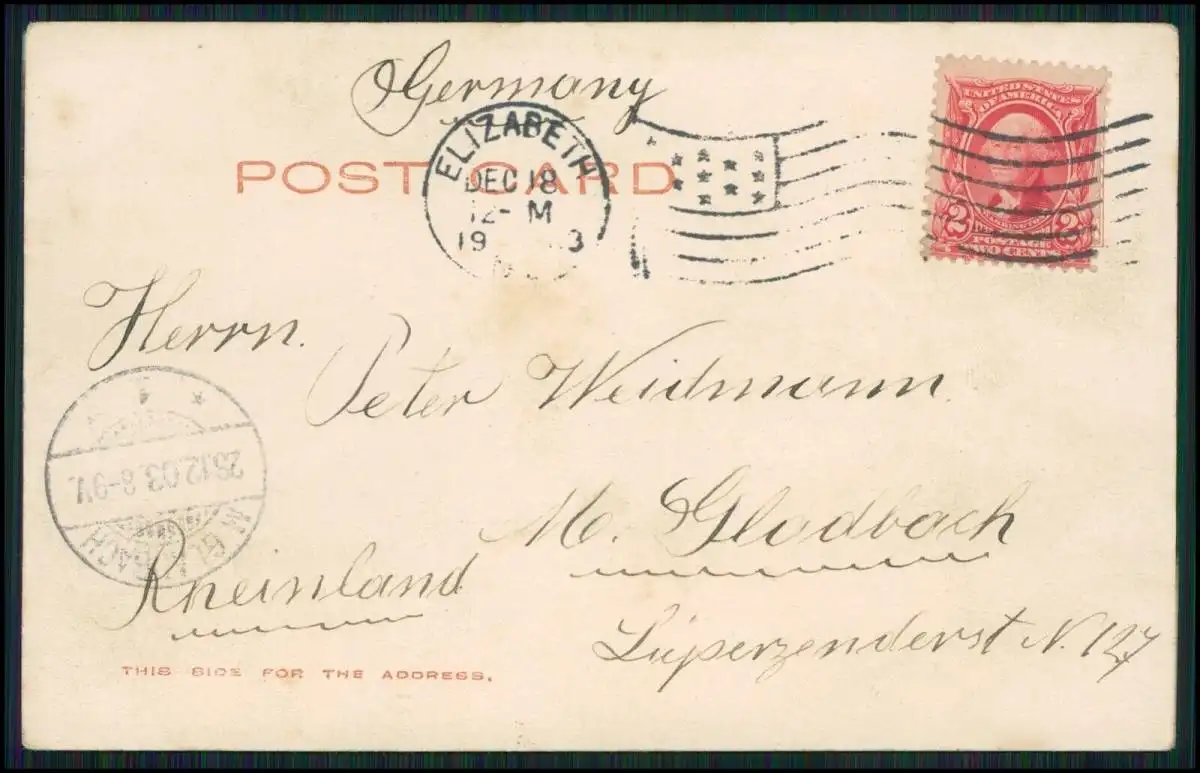 Germany
POST CARD
ELIZABETH
DEC 18
12-M
19 3
UNITED STATES
OF AMERICA
2 2
POSTAGE
TWO CENTS
Herrn.
Peter Weidmann
M. Gladbach
Rheinland
Lüperzenderst N. 127
28.12.03. 8-9V.
M. GLADBACH
THIS SIDE FOR THE ADDRESS.